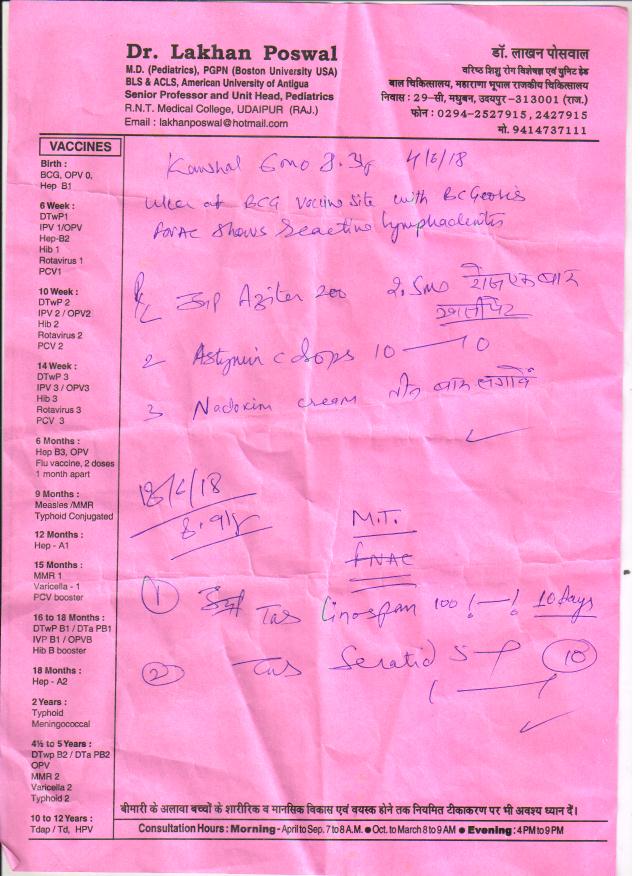 Dr. Lakhan Poswal
M.D. (Pediatrics), PGPN (Boston University USA)
BLS & ACLS, American University of Antigua
Senior Professor and Unit Head, Pediatrics
R.N.T. Medical College, UDAIPUR (RAJ.)
Email : lakhanposwal@hotmail.com
डॉ. लाखन पोसवाल
वरिष्ठ शिशु रोग विशेषज्ञ एवं युनिट हेड
बाल चिकित्सालय, महाराणा भूपाल राजकीय चिकित्सालय
निवास : 29-सी, मधुबन, उदयपुर-313001 (राज.)
फोन : 0294-2527915, 2427915
मो. 9414737111
VACCINES
Birth :
BCG, OPV 0,
Hep B1
6 Week :
DTwP1
IPV 1/OPV
Hep-B2
Hib 1
Rotavirus 1
PCV1
10 Week :
DTwP 2
IPV 2 / OPV2
Hib 2
Rotavirus 2
PCV 2
14 Week :
DTwP 3
IPV 3 / OPV3
Hib 3
Rotavirus 3
PCV 3
6 Months :
Hep B3, OPV
Flu vaccine, 2 doses
1 month apart
9 Months :
Measles /MMR
Typhoid Conjugated
12 Months :
Hep - A1
15 Months :
MMR 1
Varicella - 1
PCV booster
16 to 18 Months :
DTwP B1 / DTa PB1
IVP B1 / OPVB
Hib B booster
18 Months :
Hep - A2
2 Years :
Typhoid
Meningococcal
4½ to 5 Years :
DTwp B2 / DTa PB2
OPV
MMR 2
Varicella 2
Typhoid 2
10 to 12 Years :
Tdap / Td, HPV
Kaushal 6mo 4/6/18
Ulcer at BCG Vaccine site with
FNAC shows Reactive lymphadenitis
Aziter 200 2.5ml रोज एक बार
खालीपेट
2 c drops 10 — 0
3 Nadoxin cream तीन बार लगावें
18/6/18
M.T.
FNAC
① Tab Linospan 100 10 days
② Tab Seratid 5 10
बीमारी के अलावा बच्चों के शारीरिक व मानसिक विकास एवं वयस्क होने तक नियमित टीकाकरण पर भी अवश्य ध्यान दें।
Consultation Hours : Morning - April to Sep. 7 to 8 A.M. ● Oct. to March 8 to 9 AM ● Evening : 4 PM to 9 PM